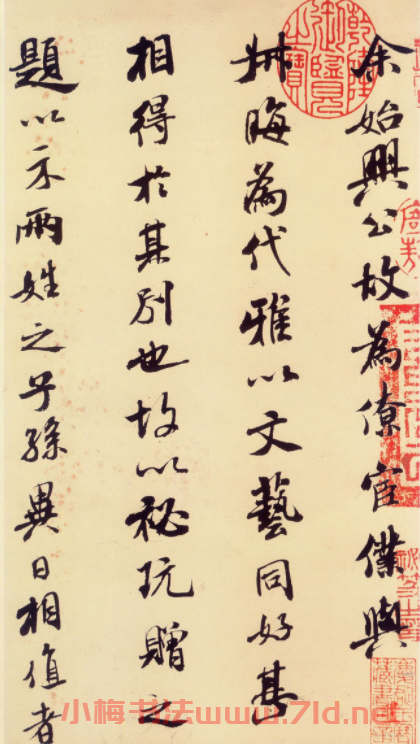 余始興公故為僚宦僕與
叔晦為代雅以文藝同好甚
相得於其別也故以秘玩贈之
題以示兩姓之子孫異日相值者
乾隆御覽之寶
小梅书法www.7ld.net